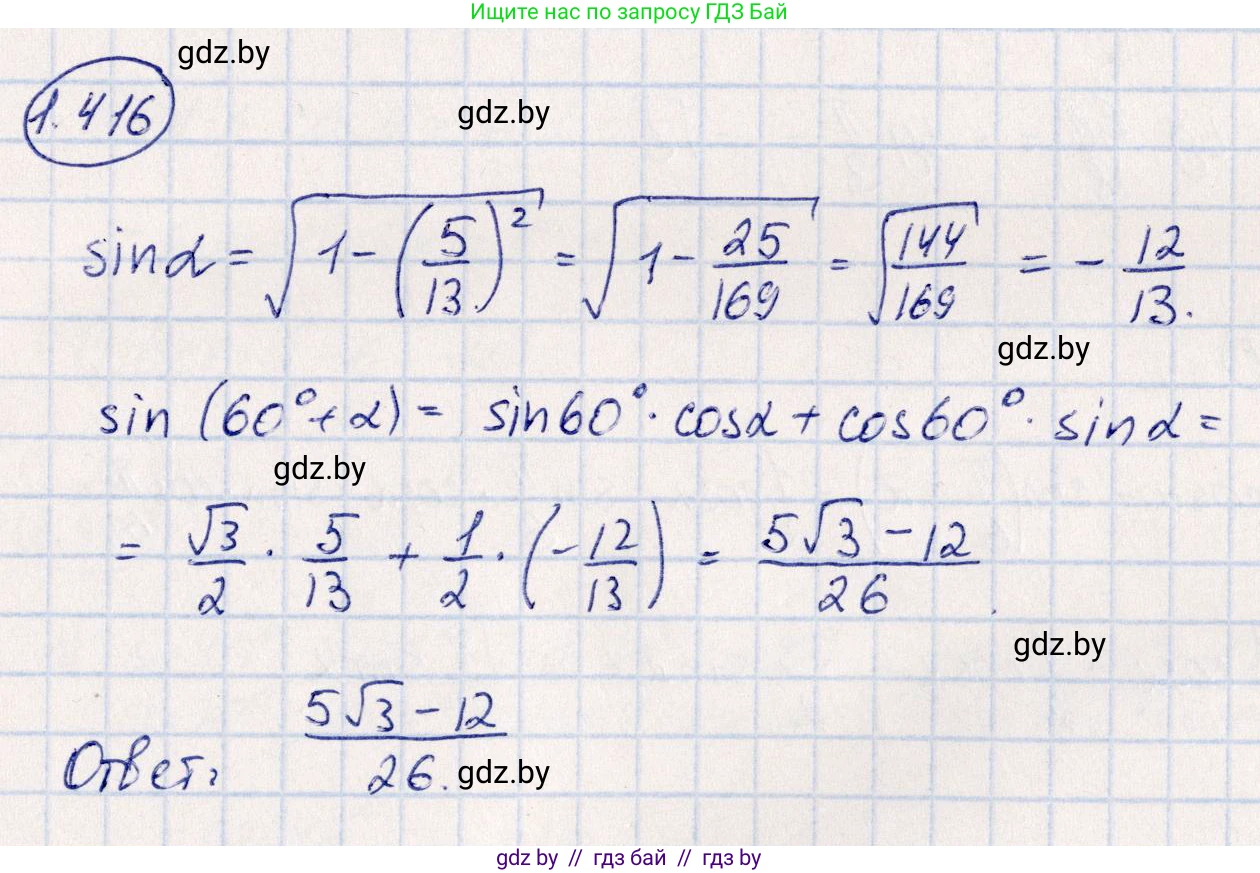 Ищите нас по запросу ГДЗ Бай
gdz.by
1.416
gdz.by
sinα = √(1-(5/13)²) = √(1-25/169) = √(144/169) = -12/13.
gdz.by
sin (60°+α) = sin60°·cosα + cos60°·sinα =
gdz.by
= √3/2 · 5/13 + 1/2 · (-12/13) = (5√3 - 12)/26.
gdz.by
Ответ: (5√3 - 12)/26.
gdz.by
gdz by // гдз бай // гдз by